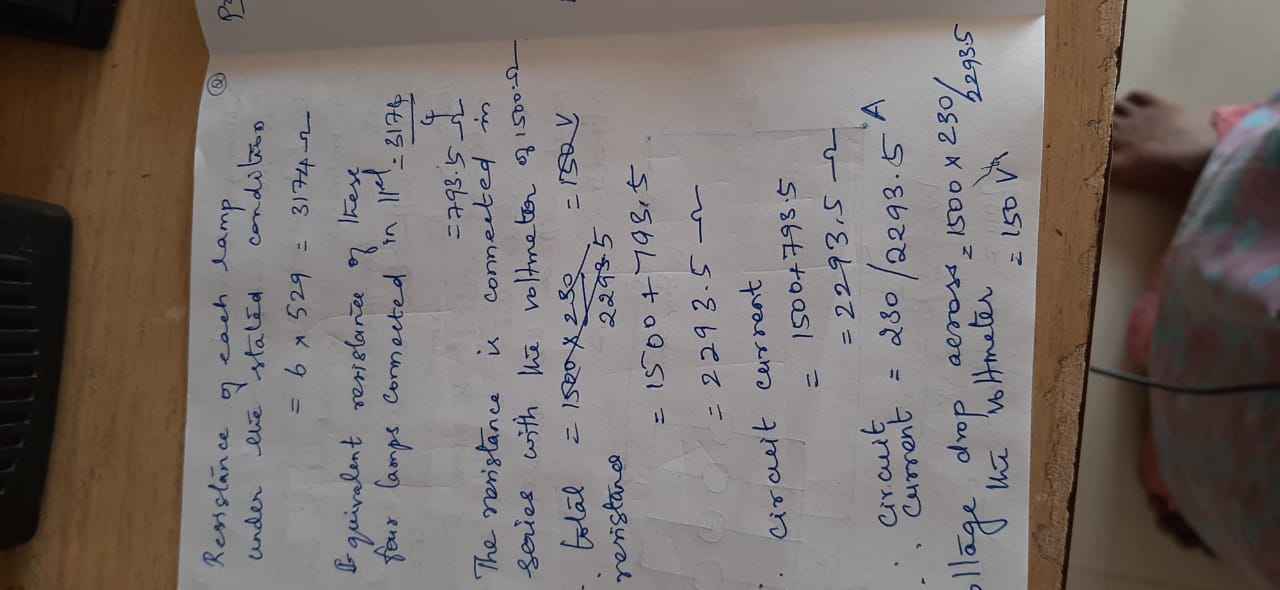 ②
Resistance of each lamp
under the stated condition
= 6 × 529 = 3174 Ω
Equivalent resistance of these
four lamps connected in llel = 3174/4
= 793.5 Ω
The resistance is connected in
series with the voltmeter of 1500 Ω
∴ total = 1500 × 230 / 2293.5 = 150V
resistance
= 1500 + 793.5
= 2293.5 Ω
∴ circuit current
= 1500 + 793.5
= 2293.5 Ω
∴ Circuit
Current = 230 / 2293.5 A
oltage drop across = 1500 × 230/2293.5
the voltmeter = 150 V